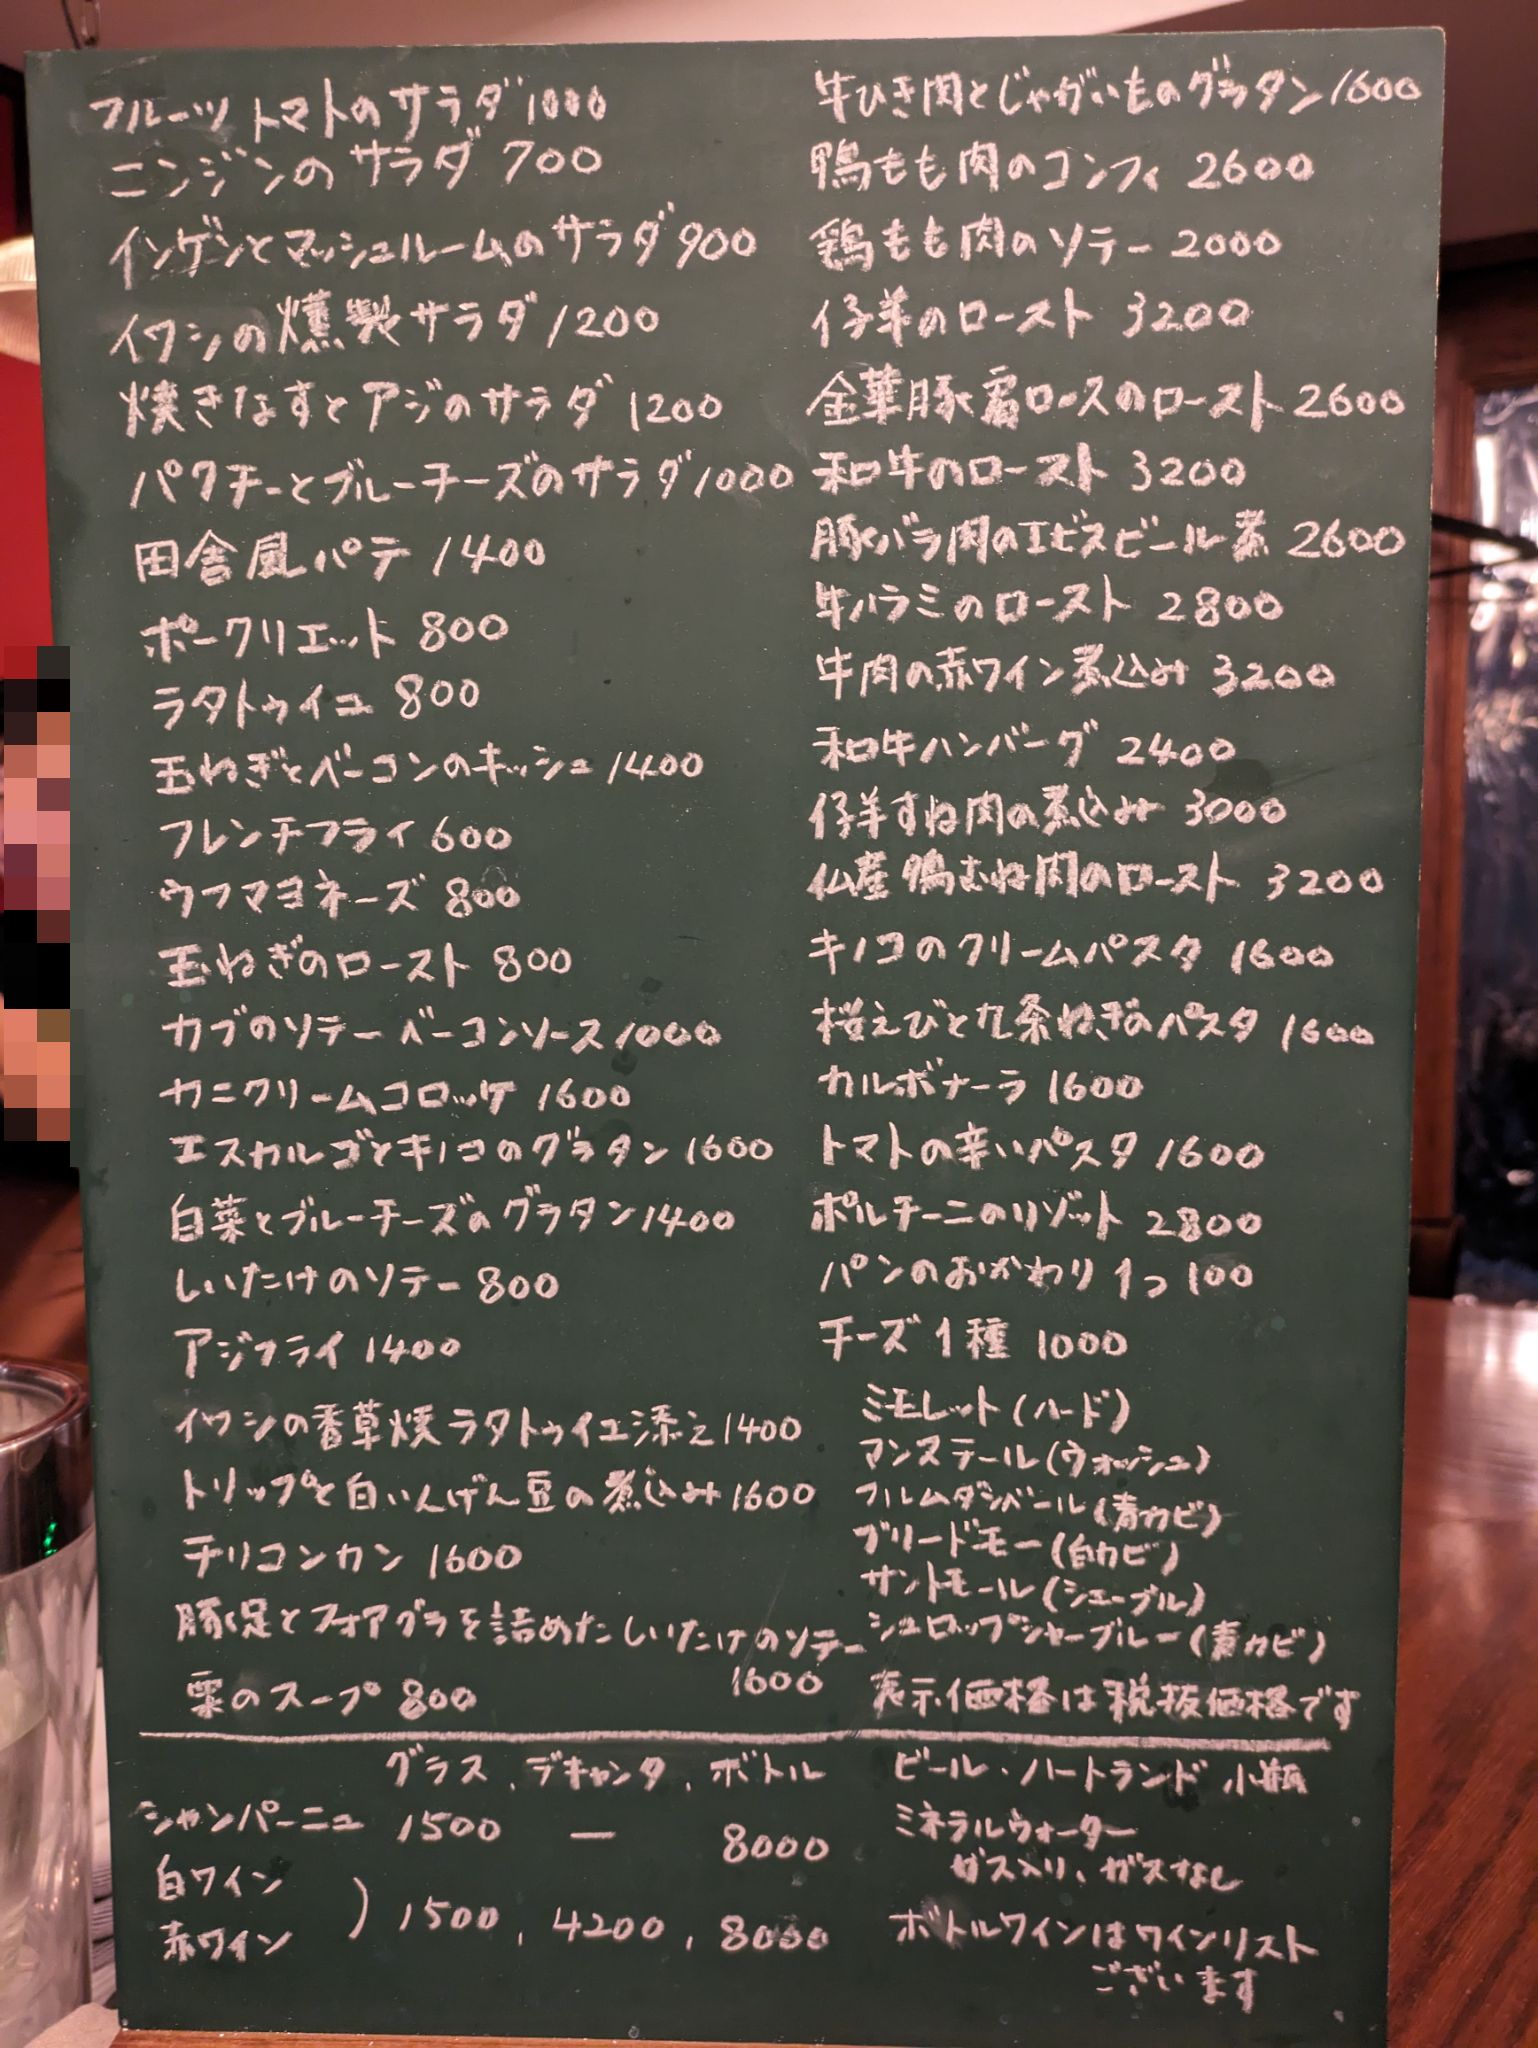 フルーツトマトのサラダ 1000
ニンジンのサラダ 700
インゲンとマッシュルームのサラダ 900
イワシの燻製サラダ 1200
焼きなすとアジのサラダ 1200
パクチーとブルーチーズのサラダ 1000
田舎風パテ 1400
ポークリエット 800
ラタトゥイユ 800
玉ねぎとベーコンのキッシュ 1400
フレンチフライ 600
ウフマヨネーズ 800
玉ねぎのロースト 800
カブのソテーベーコンソース 1000
カニクリームコロッケ 1600
エスカルゴとキノコのグラタン 1600
白菜とブルーチーズのグラタン 1400
しいたけのソテー 800
アジフライ 1400
イワシの香草焼ラタトゥイユ添え 1400
トリップと白いんげん豆の煮込み 1600
チリコンカン 1600
豚足とフォアグラを詰めたしいたけのソテー
1600
栗のスープ 800
牛ひき肉とじゃがいものグラタン 1600
鴨もも肉のコンフィ 2600
鶏もも肉のソテー 2000
仔羊のロースト 3200
金華豚肩ロースのロースト 2600
和牛のロースト 3200
豚バラ肉のエビスビール煮 2600
牛ハラミのロースト 2800
牛肉の赤ワイン煮込み 3200
和牛ハンバーグ 2400
仔羊すね肉の煮込み 3000
仏産鴨むね肉のロースト 3200
キノコのクリームパスタ 1600
桜えびと九条ねぎのパスタ 1600
カルボナーラ 1600
トマトの辛いパスタ 1600
ポルチーニのリゾット 2800
パンのおかわり 1つ 100
チーズ1種 1000
ミモレット(ハード)
マンステール(ウォッシュ)
フルムダンベール(青カビ)
ブリードモー(白カビ)
サントモール(シェーブル)
シュロップシャーブルー(青カビ)
表示価格は税抜価格です
グラス、デキャンタ、ボトル
シャンパーニュ 1500 ー 8000
白ワイン
赤ワイン ) 1500、4200、8000
ビール・ハートランド小瓶
ミネラルウォーター
ガス入り、ガスなし
ボトルワインはワインリスト
ございます